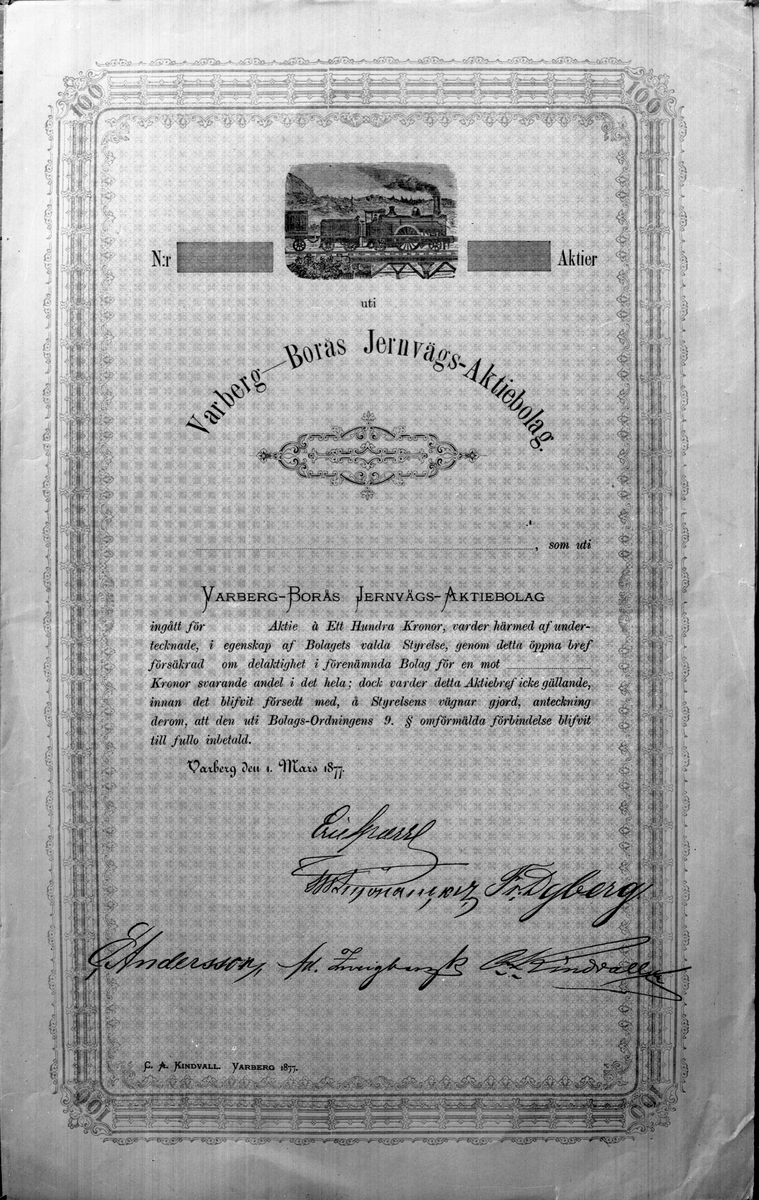 100 100
N:r Aktier
uti
Varberg—Borås Jernvägs-Aktiebolag.
, som uti
VARBERG-BORÅS JERNVÄGS-AKTIEBOLAG
ingått för Aktie à Ett Hundra Kronor, varder härmed af under-
tecknade, i egenskap af Bolagets valda Styrelse, genom detta öppna bref
försäkrad om delaktighet i förenämnda Bolag för en mot
Kronor svarande andel i det hela; dock varder detta Aktiebref icke gällande,
innan det blifvit försedt med, å Styrelsens vägnar gjord, anteckning
derom, att den uti Bolags-Ordningens 9. § omförmälda förbindelse blifvit
till fullo inbetald.
Varberg den 1. Mars 1877.
Eric Sparre
Fr. Dyberg
Andersson
Kindvall
C. A. KINDVALL. VARBERG 1877.
100 100